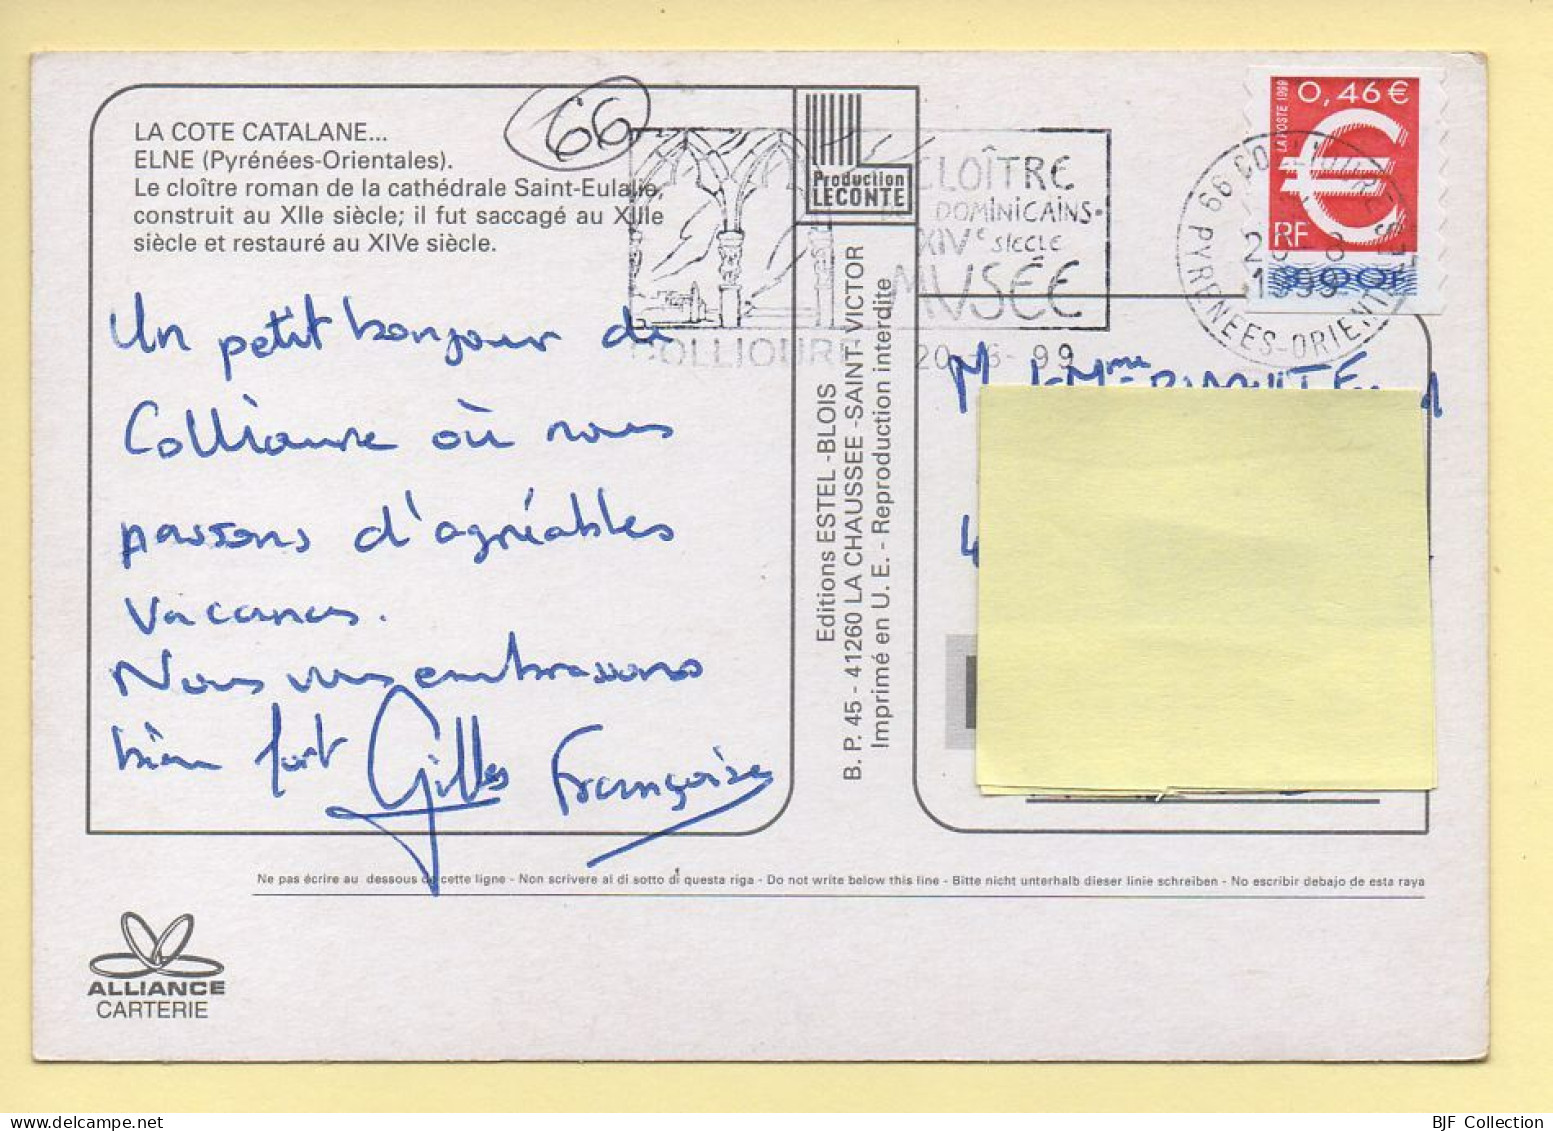 LA COTE CATALANE...
ELNE (Pyrénées-Orientales).
Le cloître roman de la cathédrale Saint-Eulalie,
construit au XIIe siècle; il fut saccagé au XIIIe
siècle et restauré au XIVe siècle.
66
Un petit bonjour de
Collioure où nous
passons d'agréables
vacances.
Nous vous embrassons
bien fort Gilles Françoise
Production
LECONTE
CLOÎTRE
DOMINICAINS
XIVe SIECLE
MUSÉE
COLLIOURE
Editions ESTEL -BLOIS
B. P. 45 - 41260 LA CHAUSSEE -SAINT-VICTOR
Imprimé en U. E. - Reproduction interdite
LA POSTE 1999
0,46 €
RF
3,00F
66 COLLIOURE
1999
PYRENEES-ORIENTALES
M et Mme
Ne pas écrire au dessous de cette ligne - Non scrivere al di sotto di questa riga - Do not write below this line - Bitte nicht unterhalb dieser linie schreiben - No escribir debajo de esta raya
ALLIANCE
CARTERIE
BJF Collection